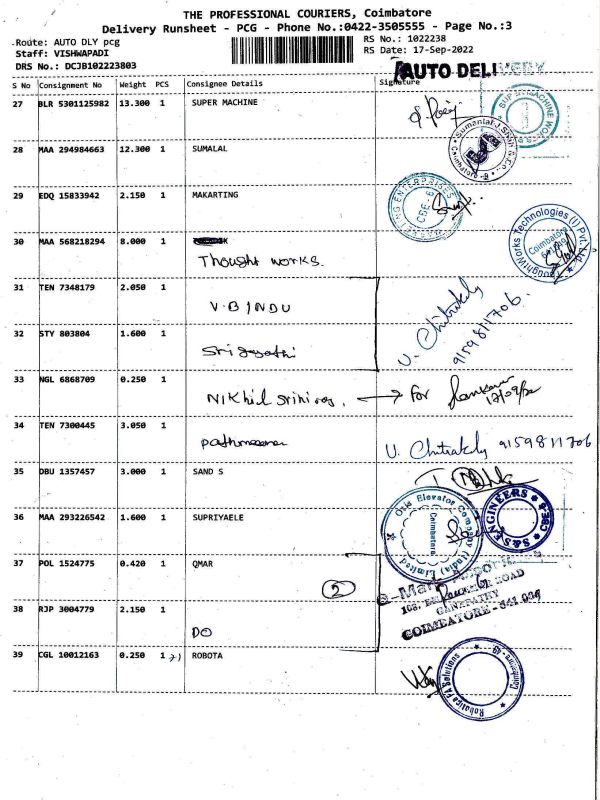 THE PROFESSIONAL COURIERS, Coimbatore
Delivery Runsheet - PCG - Phone No.:0422-3505555 - Page No.:3
Route: AUTO DLY pcg
RS No.: 1022238
Staff: VISHWAPADI
RS Date: 17-Sep-2022
DRS No.: DCJB102223803
AUTO DELIVERY
S No Consignment No Weight PCS Consignee Details Signature
27 BLR 5301125982 13.300 1 SUPER MACHINE
28 MAA 294984663 12.300 1 SUMALAL
29 EDQ 15833942 2.150 1 MAKARTING
30 MAA 568218294 8.000 1
Thought works.
31 TEN 7348179 2.050 1
V.BINDU
U. Chitrakaly
9159811706.
32 STY 803804 1.600 1
33 NGL 6868709 0.250 1
Nikhil Srini → For
34 TEN 7300445 3.050 1
U. Chitrakaly 9159811706
35 DBU 1357457 3.000 1 SAND S
36 MAA 293226542 1.600 1 SUPRIYAELE
S&S ENGINEERS CBE-6
Otis Elevator Company (India) Limited
Coimbatore
37 POL 1524775 0.420 1 QMAR
2
ROAD
GANAPATHY
COIMBATORE - 641 006
38 RJP 3004779 2.150 1
DO
39 CGL 10012163 0.250 1 ROBOTA